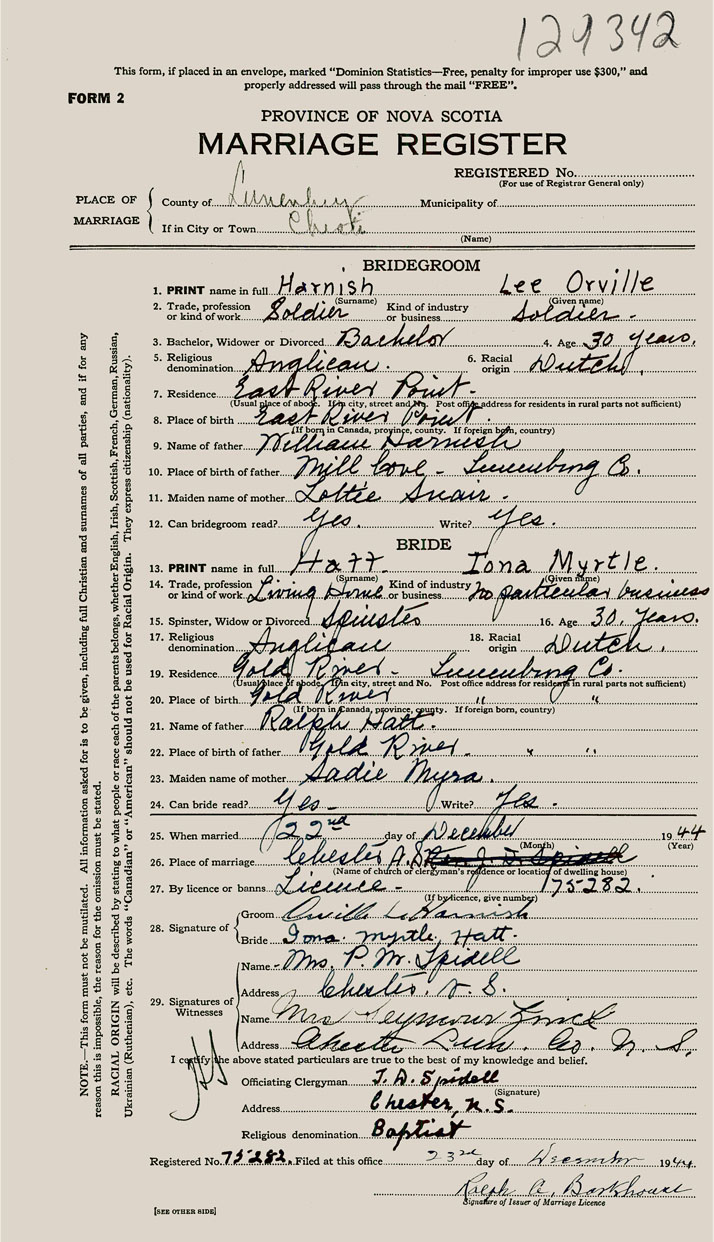 129342
This form, if placed in an envelope, marked "Dominion Statistics—Free, penalty for improper use $300," and
properly addressed will pass through the mail "FREE".
FORM 2
PROVINCE OF NOVA SCOTIA
MARRIAGE REGISTER
REGISTERED No.
(For use of Registrar General only)
PLACE OF MARRIAGE
County of Lunenburg Municipality of
If in City or Town Chester
(Name)
BRIDEGROOM
1. PRINT name in full Harnish Lee Orville
(Surname) (Given name)
2. Trade, profession or kind of work Soldier Kind of industry or business Soldier.
3. Bachelor, Widower or Divorced Bachelor 4. Age 30 years.
5. Religious denomination Anglican. 6. Racial origin Dutch.
7. Residence East River Point.
(Usual place of abode. If in city, street and No. Post office address for residents in rural parts not sufficient)
8. Place of birth East River Point.
(If born in Canada, province, county. If foreign born, country)
9. Name of father William Harnish
10. Place of birth of father Mill Cove - Lunenburg Co.
11. Maiden name of mother Lottie Snair.
12. Can bridegroom read? Yes. Write? Yes.
BRIDE
13. PRINT name in full Hatt Iona Myrtle.
(Surname) (Given name)
14. Trade, profession or kind of work Living Home Kind of industry or business no particular business
15. Spinster, Widow or Divorced Spinster 16. Age 30. Years.
17. Religious denomination Anglican 18. Racial origin Dutch.
19. Residence Gold River - Lunenburg Co.
(Usual place of abode. If in city, street and No. Post office address for residents in rural parts not sufficient)
20. Place of birth Gold River " "
(If born in Canada, province, county. If foreign born, country)
21. Name of father Ralph Hatt.
22. Place of birth of father Gold River " "
23. Maiden name of mother Sadie Myra.
24. Can bride read? Yes - Write? Yes.
25. When married 22nd day of December 1944
(Month) (Year)
26. Place of marriage Chester N.S. Rev. J. D. Spidell
(Name of church or clergyman's residence or location of dwelling house)
27. By licence or banns Licence - 175282.
(If by licence, give number)
28. Signature of
Groom Orville L. Harnish
Bride Iona Myrtle Hatt.
29. Signatures of Witnesses
Name Mrs. P. W. Spidell
Address Chester, N. S.
Name Mrs Seymour Zinck
Address Chester Lun. Co. N. S.
I certify the above stated particulars are true to the best of my knowledge and belief.
Officiating Clergyman J. D. Spidell
(Signature)
Address Chester, N.S.
Religious denomination Baptist
Registered No. 75282. Filed at this office 23rd day of December 1944
Ralph A. Barkhouse
Signature of Issuer of Marriage Licence
[SEE OTHER SIDE]
NOTE.—This form must not be mutilated. All information asked for is to be given, including full Christian and surnames of all parties, and if for any
reason this is impossible, the reason for the omission must be stated.
RACIAL ORIGIN will be described by stating to what people or race each of the parents belongs, whether English, Irish, Scottish, French, German, Russian,
Ukrainian (Ruthenian), etc. The words "Canadian" or "American" should not be used for Racial Origin. They express citizenship (nationality).